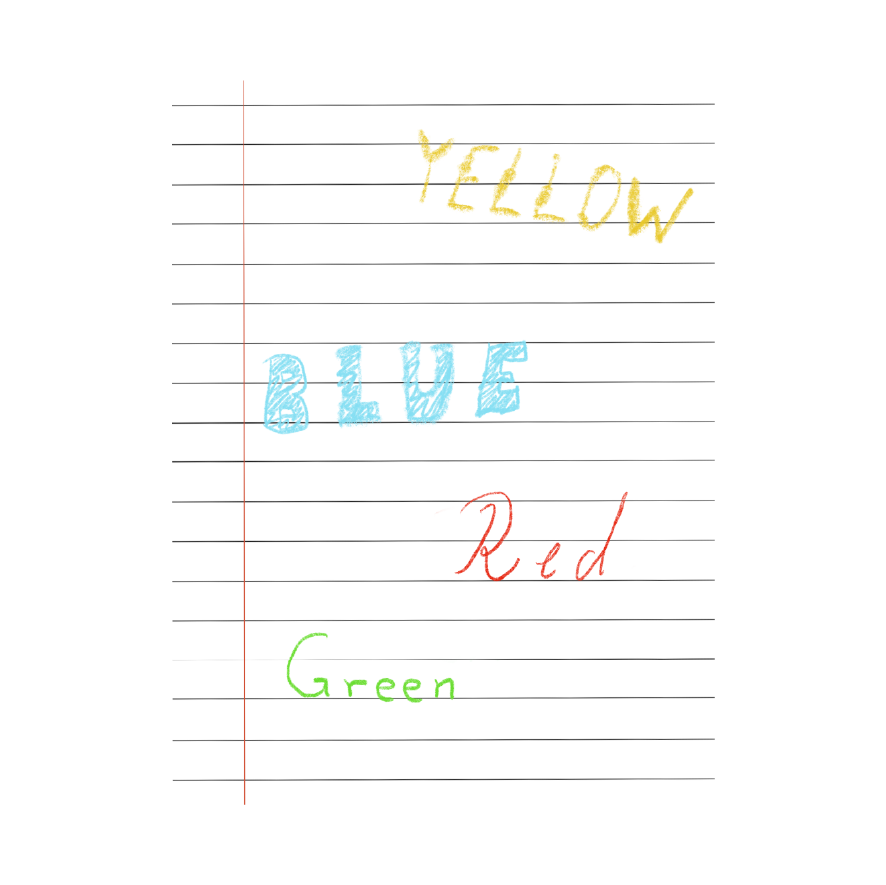 YELLOW
BLUE
Red
Green